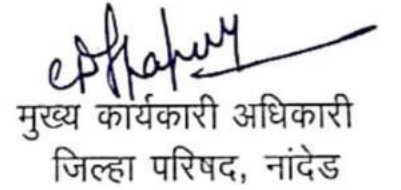 मुख्य कार्यकारी अधिकारी
जिल्हा परिषद, नांदेड